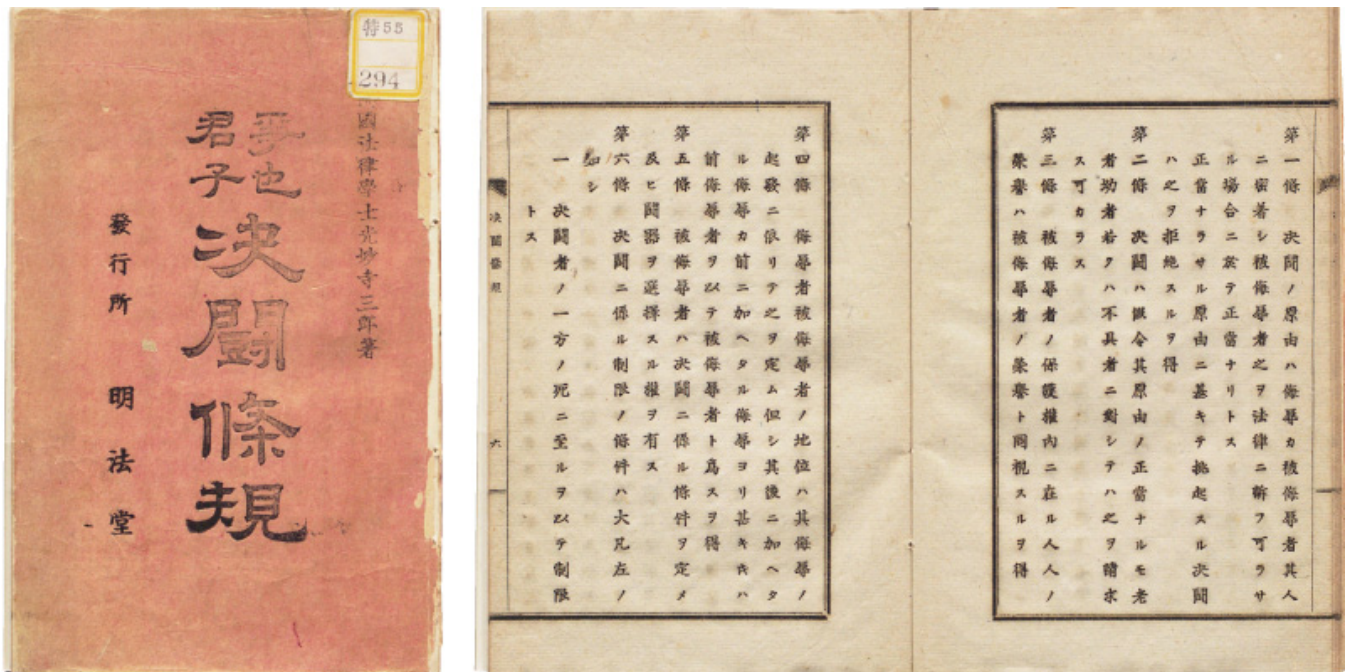 特55
294
國法律學士光妙寺三郎著
其爭也
君子
決鬪條規
發行所 明法堂
第一條 決鬪ノ原由ハ侮辱カ被侮辱者其人
ニ密著シ被侮辱者之ヲ法律ニ訴フ可ラサ
ル塲合ニ於テ正當ナリトス
正當ナラサル原由ニ基キテ挑起スル決鬪
ハ之ヲ拒絶スルヲ得
第二條 決鬪ハ縱令其原由ノ正當ナルモ老
者幼者若クハ不具者ニ對シテハ之ヲ請求
ス可カラス
第三條 被侮辱者ノ保護權内ニ在ル人人ノ
榮譽ハ被侮辱者ノ榮譽ト同視スルヲ得
第四條 侮辱者被侮辱者ノ地位ハ其侮辱ノ
起發ニ依リテ之ヲ定ム但シ其後ニ加ヘタ
ル侮辱カ前ニ加ヘタル侮辱ヨリ甚キ𪜈ハ
前侮辱者ヲ以テ被侮辱者ト爲スヲ得
第五條 被侮辱者ハ決鬪ニ係ル條件ヲ定メ
及ヒ鬪器ヲ選擇スル權ヲ有ス
第六條 決鬪ニ係ル制限ノ條件ハ大凡左ノ
如シ
一 決鬪者ノ一方ノ死ニ至ルヲ以テ制限
トス
決鬪條規
六